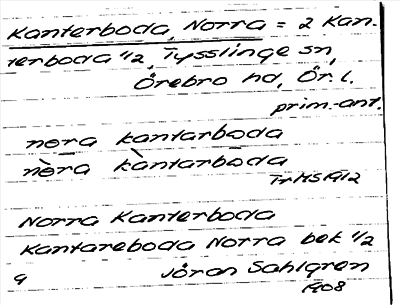 Kanterboda, Norra = 2 Kan-
terboda 1/2, Tysslinge sn,
Örebro hd, Ör. l.
prim.-ant.
nora kantarboda
nòra kàntarboda
Norra Kanterboda
Kantareboda Norra bek 1/2
9 Jöran Sahlgren
1908